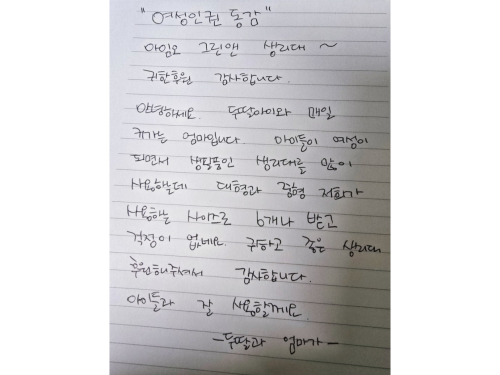 "여성인권 동감"
아임오 그린앤 생리대 ~
귀한후원 감사합니다.
안녕하세요. 두딸아이와 매일
커가는 엄마입니다. 아이들이 여성이
되면서 생필품인 생리대를 많이
사용하는데 대형과 중형 저희가
사용하는 사이즈로 6개나 받고
걱정이 없네요. 귀하고 좋은 생리대
후원해주셔서 감사합니다.
아이들과 잘 사용할께요.
-두딸과 엄마가-